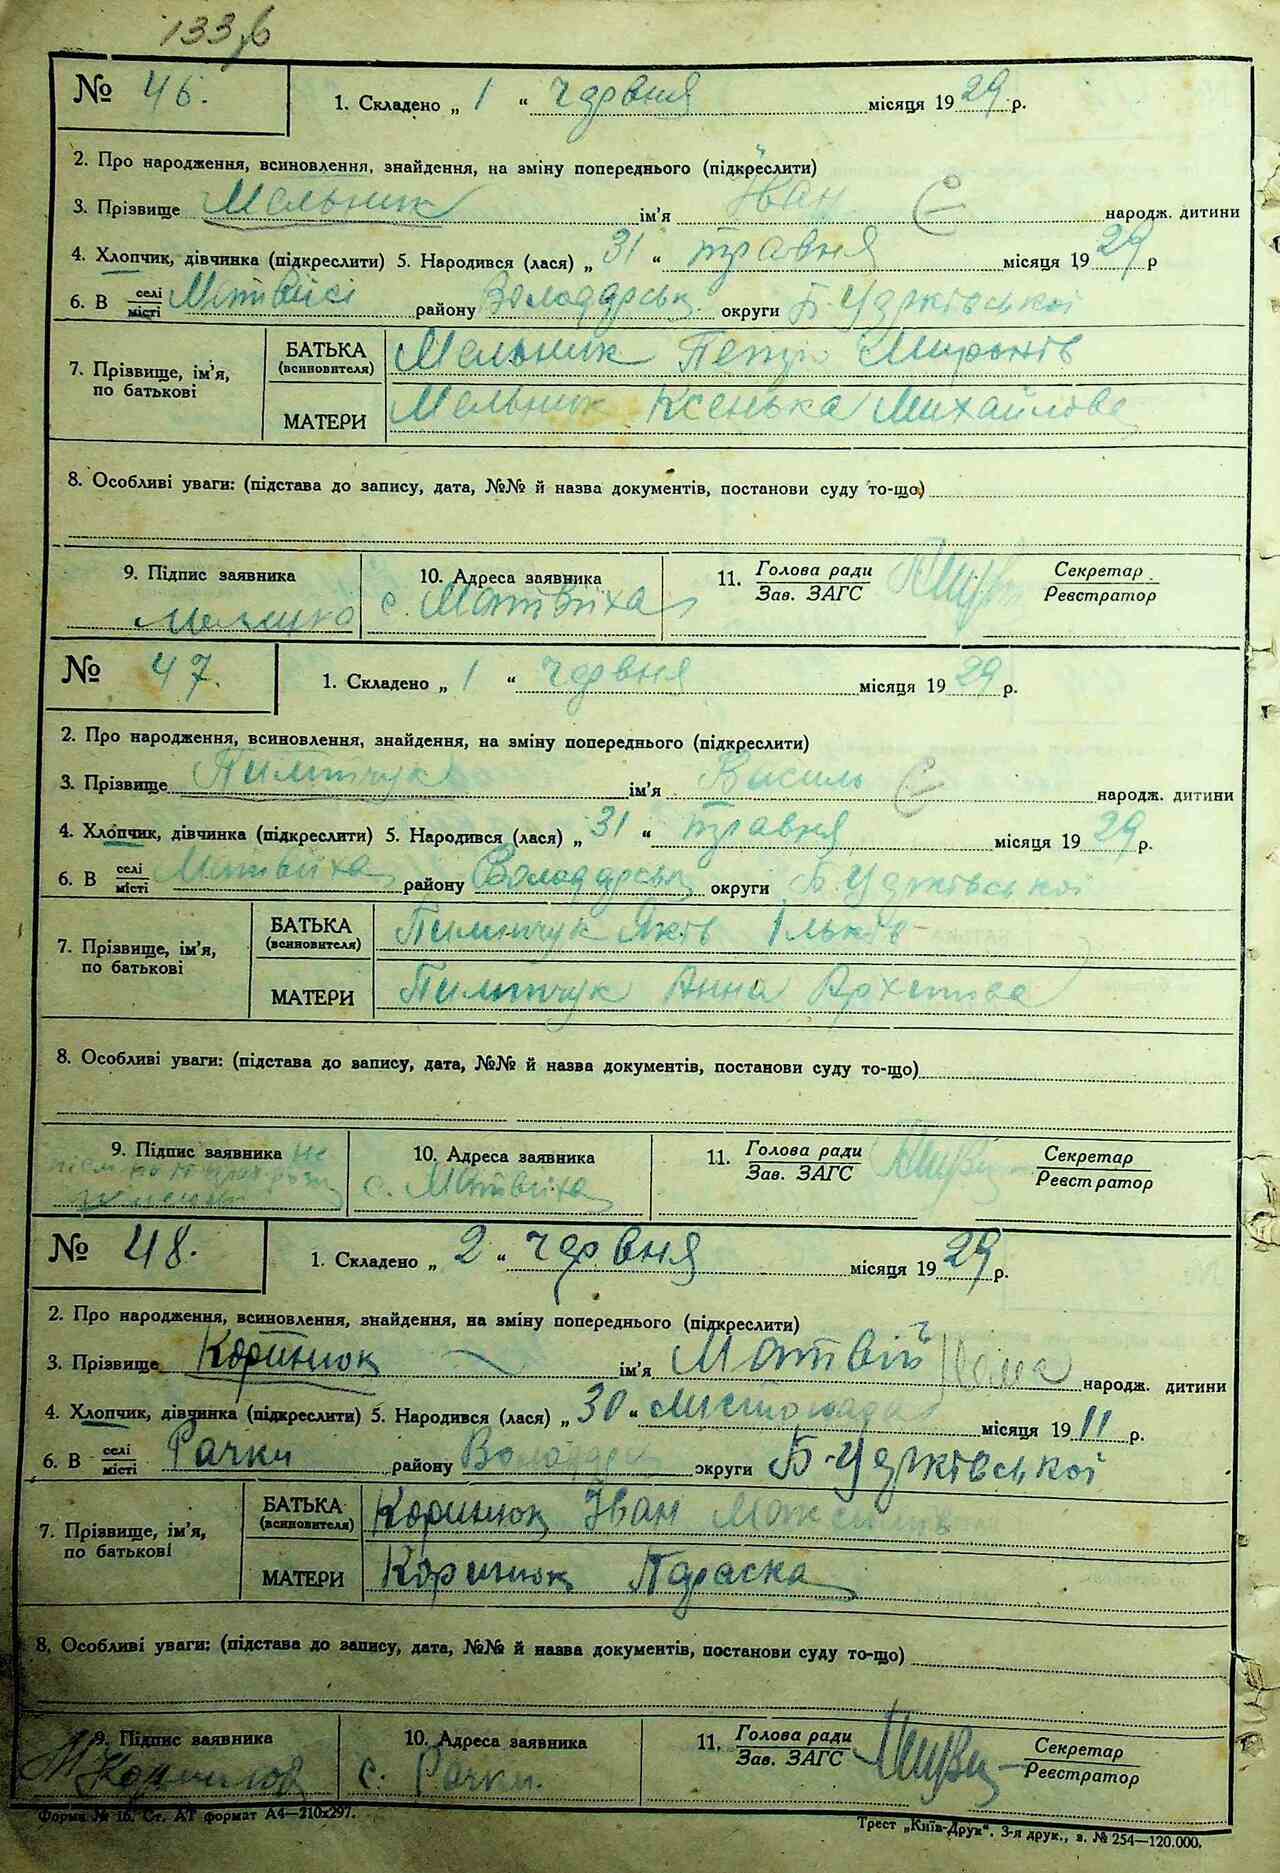 133
№ 46. 1. Складено „ 1 “ червня місяця 1929 р.
2. Про народження, всиновлення, знайдення, на зміну попереднього (підкреслити)
3. Прізвище Мельник ім'я Іван народж. дитини
4. Хлопчик, дівчинка (підкреслити) 5. Народився (лася) „ 31 “ травня місяця 1929 р
6. В селі місті Матвійсі району Володарськ. округи Б-Церківської
7. Прізвище, ім'я, по батькові БАТЬКА (всиновителя) Мельник Петро Миронів
МАТЕРИ Мельник Ксенька Михайлова
8. Особливі уваги: (підстава до запису, дата, №№ й назва документів, постанови суду то-що)
9. Підпис заявника 10. Адреса заявника с. Матвіїха 11. Голова ради Зав. ЗАГС Секретар Реєстратор
№ 47. 1. Складено „ 1 “ червня місяця 1929 р.
2. Про народження, всиновлення, знайдення, на зміну попереднього (підкреслити)
3. Прізвище Пилипчук ім'я Василь народж. дитини
4. Хлопчик, дівчинка (підкреслити) 5. Народився (лася) „ 31 “ травня місяця 1929 р.
6. В селі місті Матвіїха району Володарськ округи Б-Церківської
7. Прізвище, ім'я, по батькові БАТЬКА (всиновителя) Пилипчук Яків Ільків
МАТЕРИ Пилипчук Анна Архипова
8. Особливі уваги: (підстава до запису, дата, №№ й назва документів, постанови суду то-що)
9. Підпис заявника не 10. Адреса заявника с. Матвіїха 11. Голова ради Зав. ЗАГС Секретар Реєстратор
№ 48. 1. Складено „ 2 “ червня місяця 1929 р.
2. Про народження, всиновлення, знайдення, на зміну попереднього (підкреслити)
3. Прізвище Коринюк ім'я Матвій народж. дитини
4. Хлопчик, дівчинка (підкреслити) 5. Народився (лася) „ 30 “ листопада місяця 1911 р.
6. В селі місті Рачки району округи Б-Церківської
7. Прізвище, ім'я, по батькові БАТЬКА (всиновителя) Коринюк Іван
МАТЕРИ Коринюк Параска
8. Особливі уваги: (підстава до запису, дата, №№ й назва документів, постанови суду то-що)
9. Підпис заявника 10. Адреса заявника с. Рачки. 11. Голова ради Зав. ЗАГС Секретар Реєстратор
Форма № 16. Ст. АТ формат А4—210х297. Трест „Київ-Друк“. 3-я друк., з. № 254—120.000.